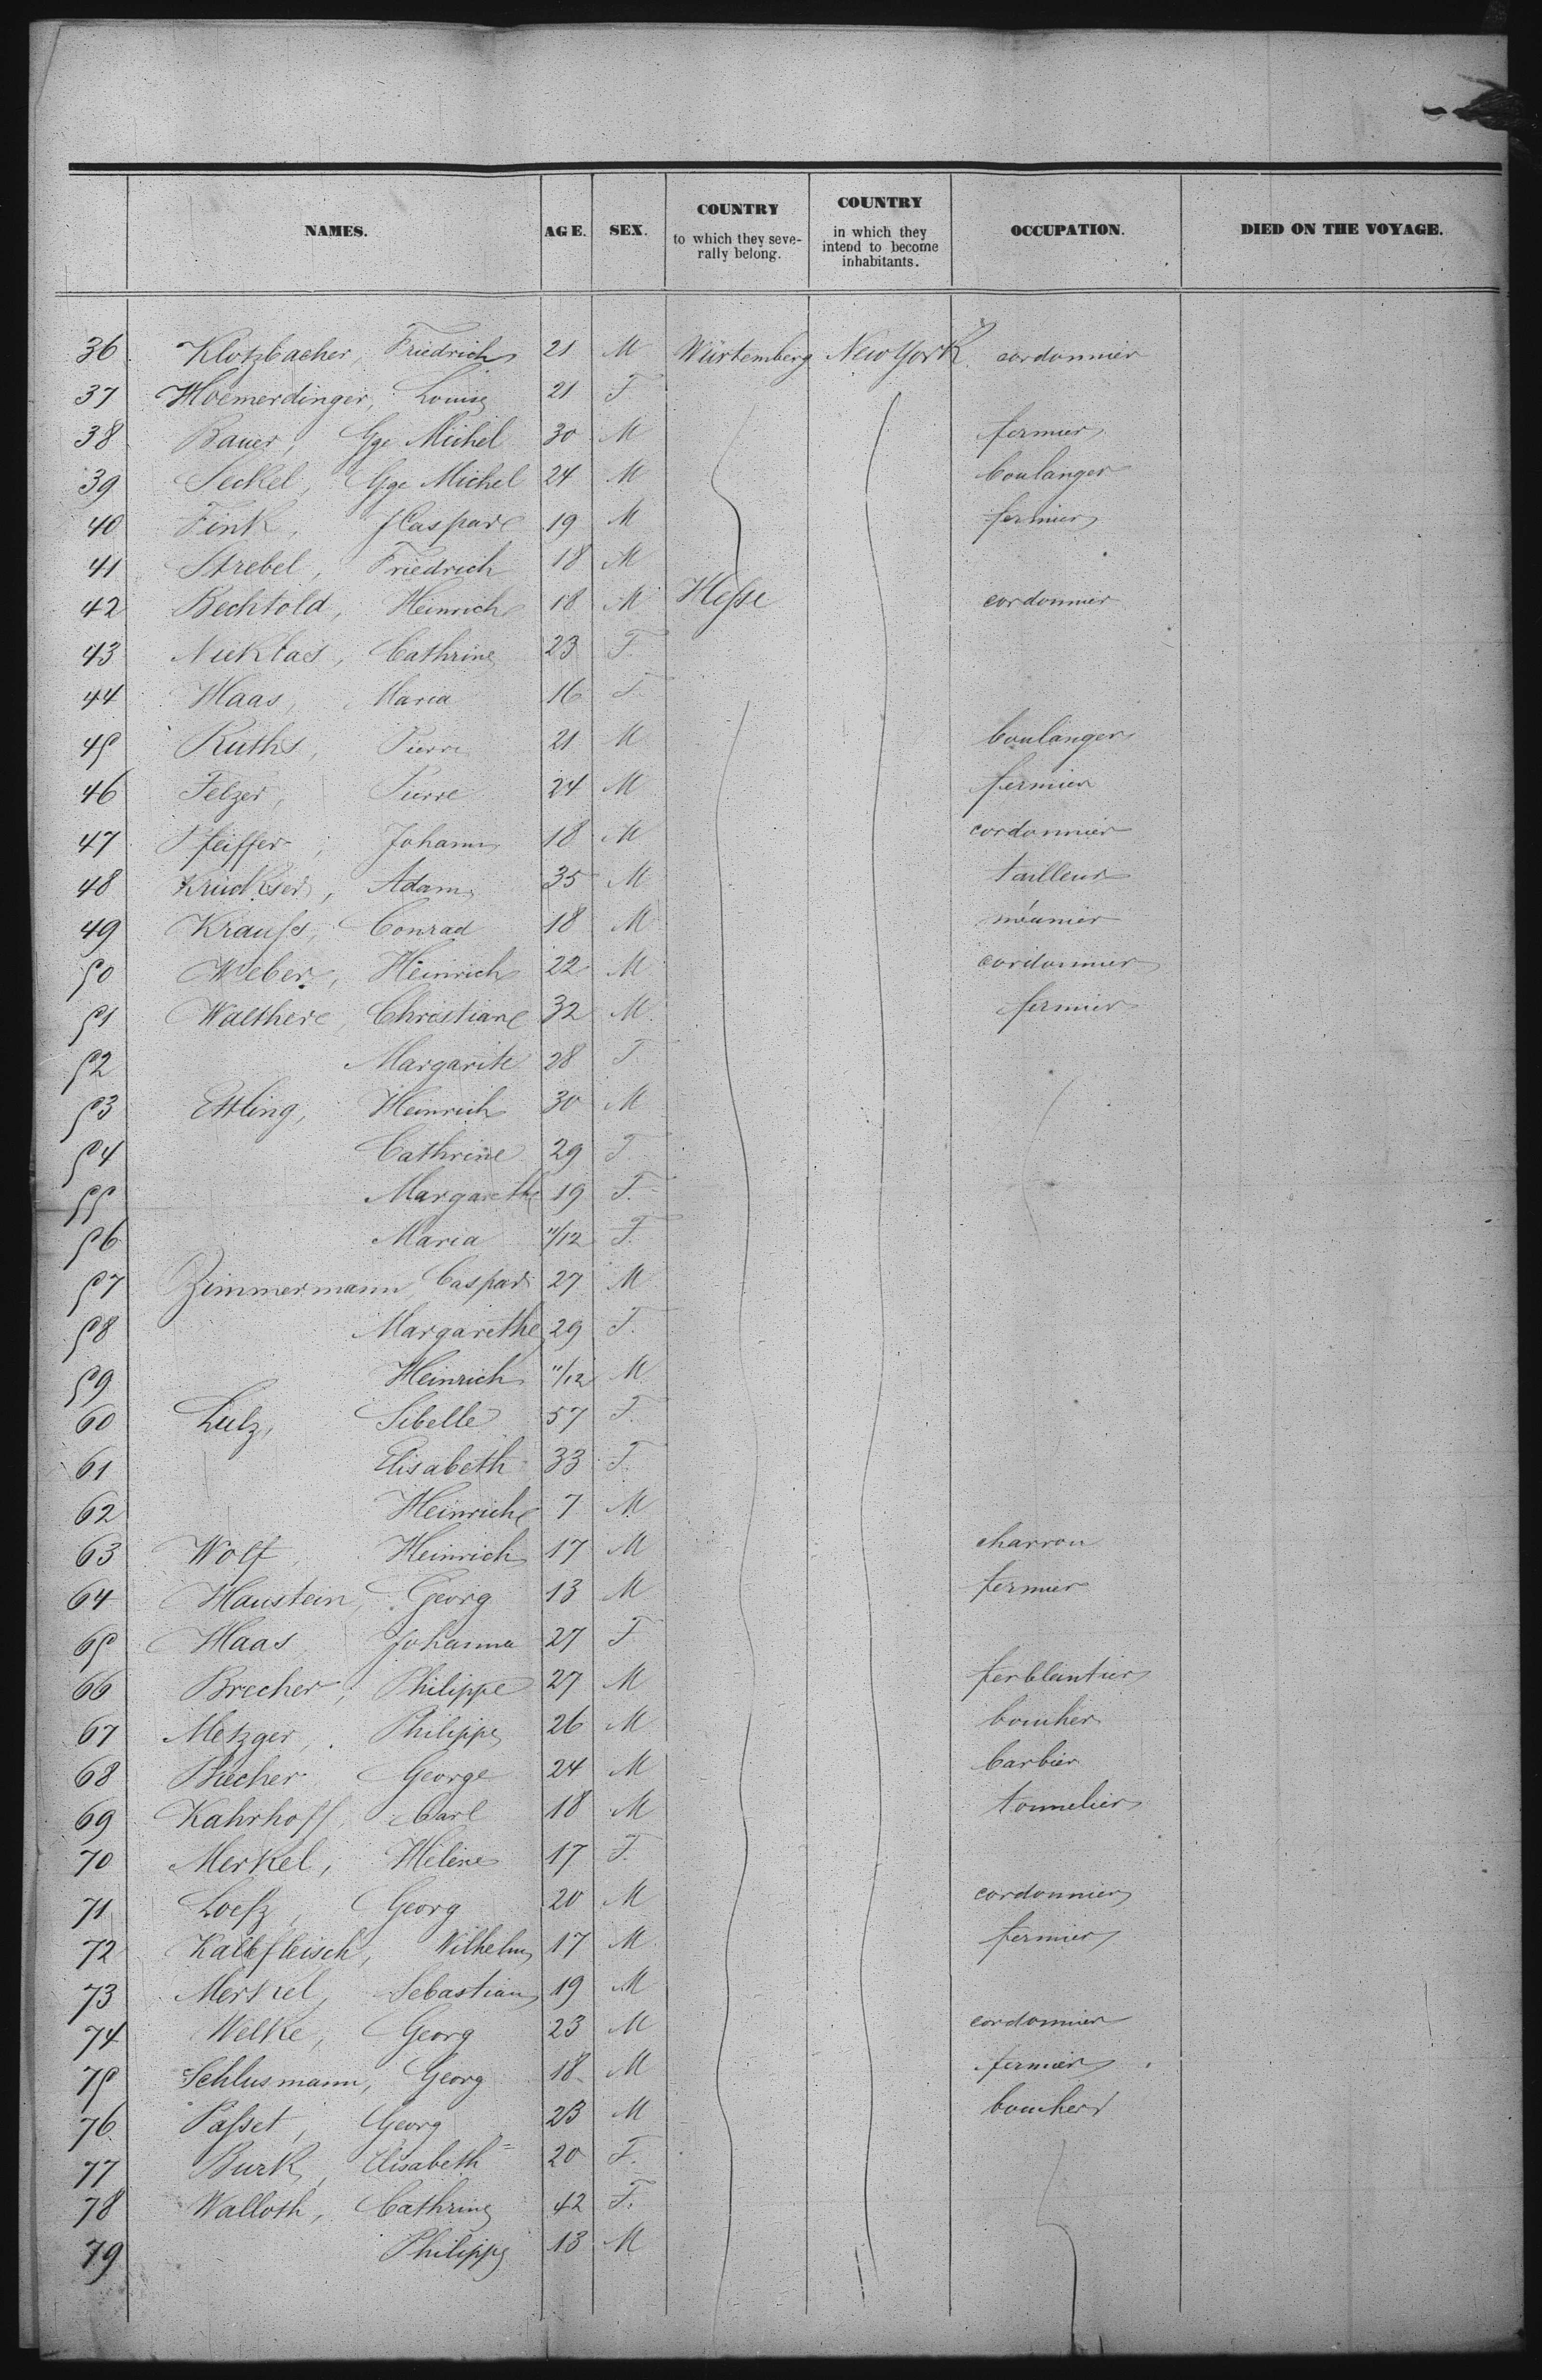 NAMES. AGE. SEX. COUNTRY to which they seve-rally belong. COUNTRY in which they intend to become inhabitants. OCCUPATION. DIED ON THE VOYAGE.
36 Klotzbacher, Friedrich 21 M Würtemberg New York cordonnier
37 Hoemerdinger, Louise 21 F
38 Bauer, Gge Michel 30 M fermier
39 Seckel, Gge Michel 24 M boulanger
40 Fink, Caspare 19 M fermier
41 Strebel, Friedrich 18 M
42 Bechtold, Heinrich 18 M Hesse cordonnier
43 Nicklaes, Cathrine 23 F.
44 Haas, Maria 16 F.
45 Ruths, Pierre 21 M boulanger
46 Felzer, Pierre 24 M fermier
47 Pfeiffer, Johann 18 M cordonnier
48 Adam 35 M tailleur
49 Krauss, Conrad 18 M meunier
50 Weber, Heinrich 22 M cordonnier
51 Walther, Christian 32 M. fermier
52 Margarite 28 F.
53 Ettling, Heinrich 30 M
54 Cathrine 29 F
55 Margarethe 19 F.
56 Maria 11/12 F.
57 Zimmermann, Caspar 27 M
58 Margarethe 29 F.
59 Heinrich 11/12 M
60 Lulz, Sibelle 57 F.
61 Elisabeth 33 F.
62 Heinrich 7 M
63 Wolf, Heinrich 17 M charron
64 Haustein, Georg 13 M fermier
65 Haas Johanna 27 F
66 Brecher, Philippe 27 M ferblantier
67 Metzger, Philippe 26 M boucher
68 George 24 M barbier
69 Kahrhoff, Carl 18 M tonnelier
70 Merkel, Hélène 17 F.
71 Georg 20 M cordonnier
72 Kalbfleisch, Wilhelm 17 M fermier
73 Merkel, Sebastian 19 M
74 Welke, Georg 23 M cordonnier
75 Schlusmann, Georg 18 M fermier
76 Passet, Georg 23 M boucher
77 Burk, Elisabeth 20 F.
78 Walloth, Cathrine 42 F.
79 Philippe 13 M